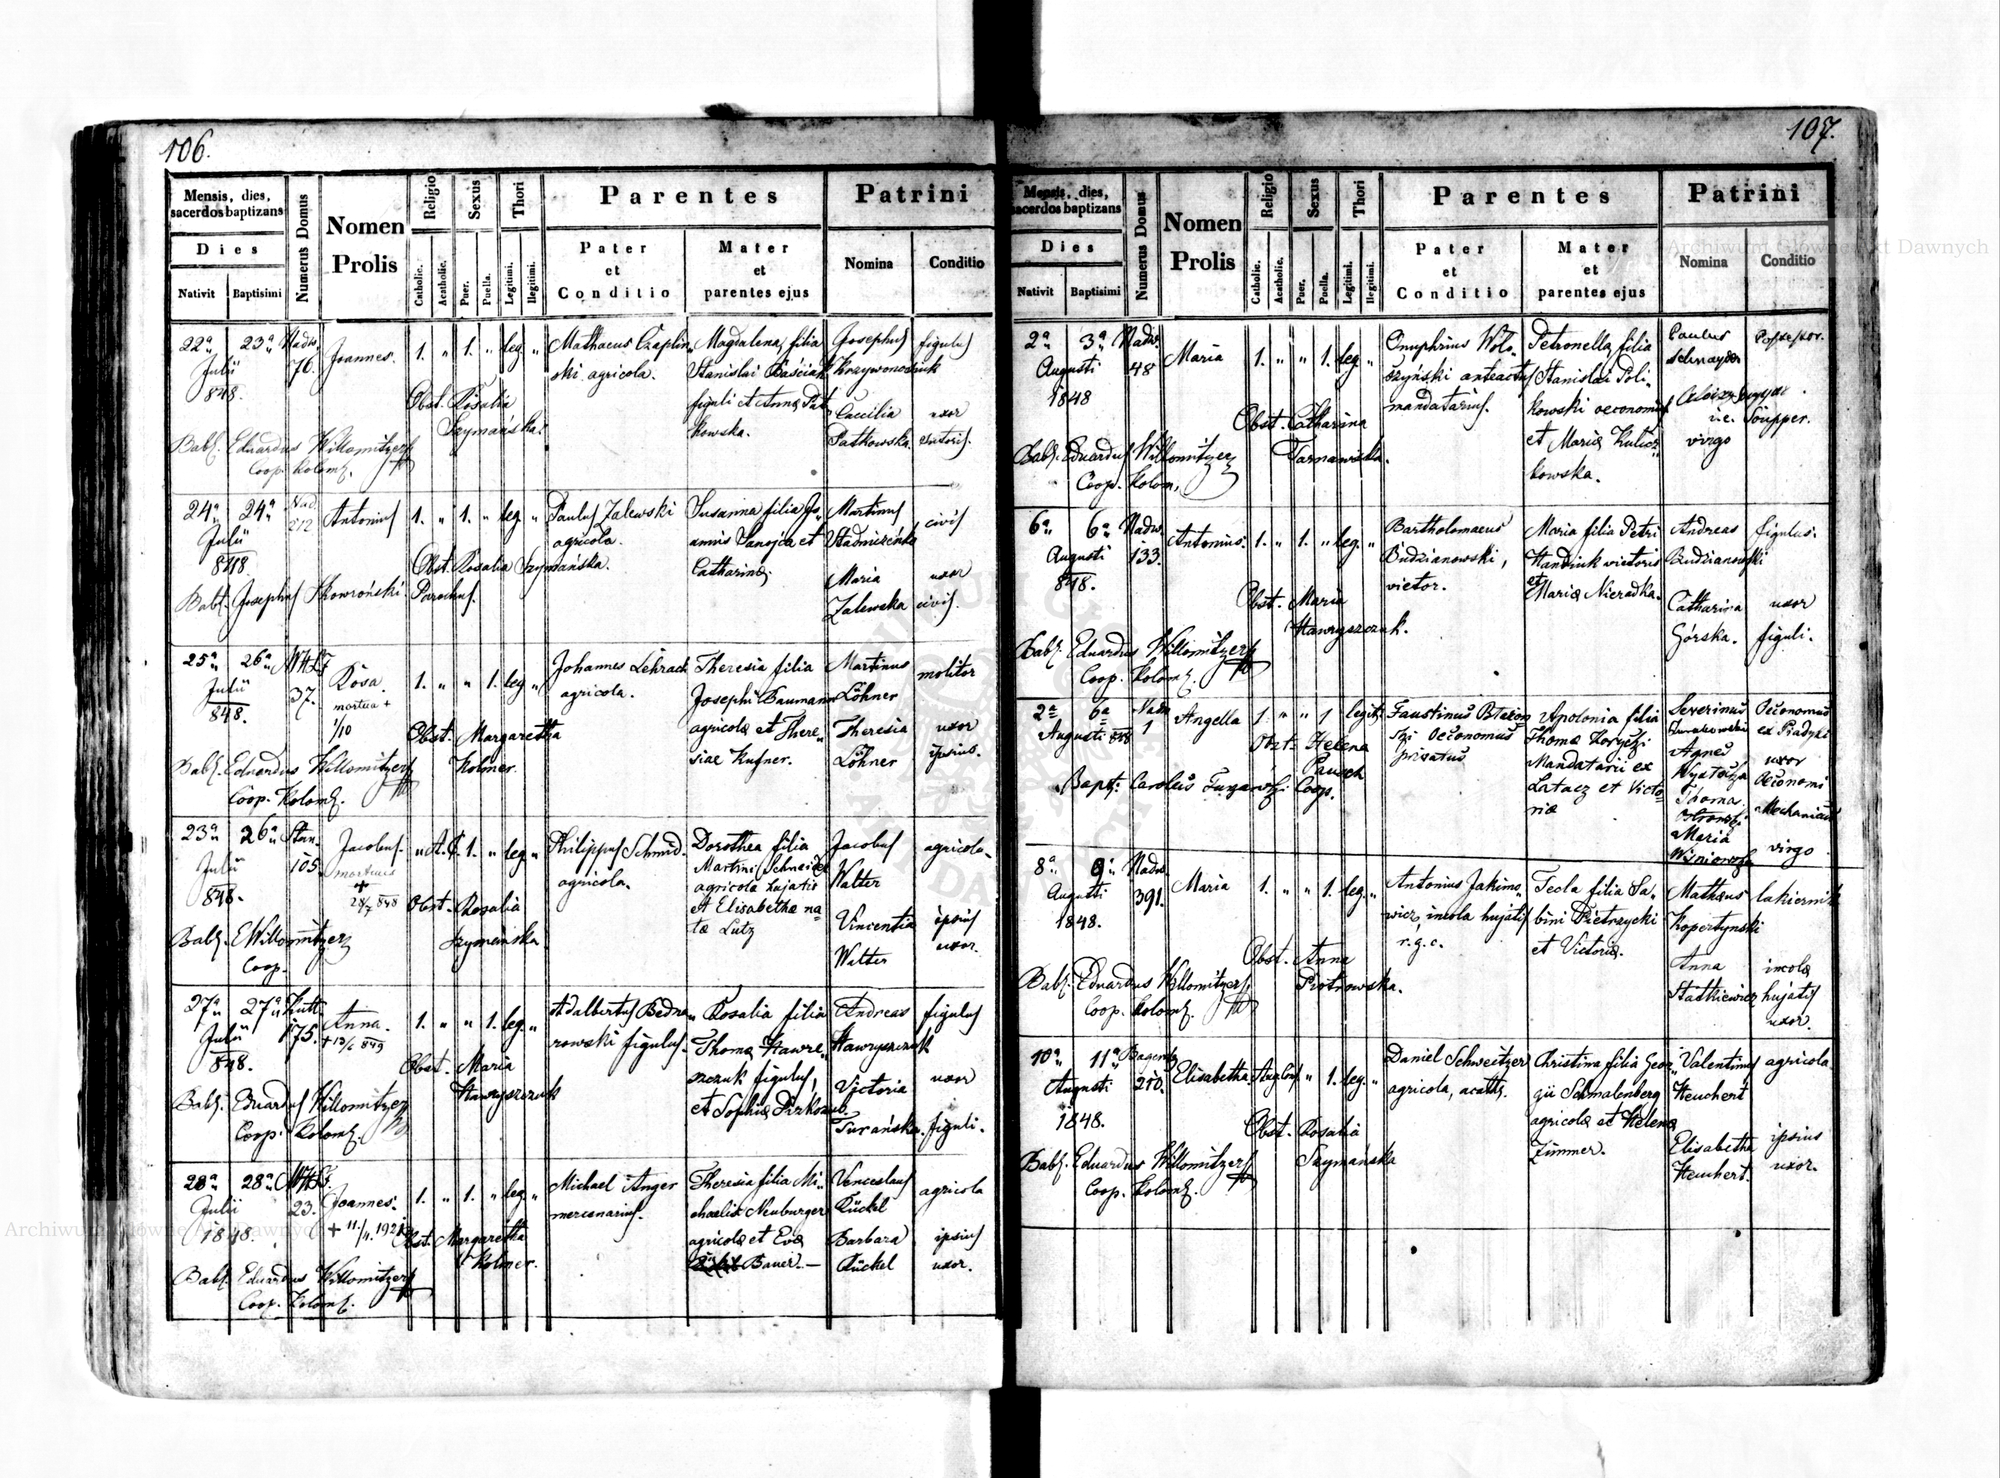 106.
Mensis, dies,
sacerdos baptizans
Dies
Nativit
Baptisimi
Numerus Domus
Nomen
Prolis
Religio
Catholic.
Acatholic.
Sexus
Puer.
Puella.
Thori
Legitimi.
Illegitimi.
Parentes
Pater
et
Conditio
Mater
et
parentes ejus
Patrini
Nomina
Conditio
22a 23a Nadw. Joannes. 1. " 1. " leg. " Mathaeus Czaplin Magdalena filia Josephus figulus
Julii 76. ski agricola. Stanislai
848. Obst. Rosalia figuli et Anna
Szymańska. kowska. Caecilia uxor
Bapt. Eduardus Willomitzer Patkowska sutoris.
Coop. Kolom.
24a 24a Nad. Antonius 1. " 1. " leg. " Paulus Zalewski Susanna filia Jo Martinus civis
Julii 212 agricola. annis Sanojca et
848. Obst. Rosalia Szymańska. Catharina.
Maria uxor
Bapt. Josephus Skowroński. Parochus. Zalewska civis.
25a 26a Rosa. 1. " " 1. leg. " Johannes Lehrach Theresia filia Martinus molitor
Julii 37. mortua + agricola. Josephi Baumann Löhner
848. 1/10 Obst. Margaretha agricola et There Theresia uxor
siae Kufner. Löhner ipsius.
Bapt. Eduardus Willomitzer Kolmer.
Coop. Kolom.
23a 26a Stan. Jacobus. " A.C. 1. " leg. " Philippus Schmid. Dorothea filia Jacobus agricola.
Julii 105 mortuus agricola. Martini Schneider Walter
848. + 28/7 848 Obst. Rosalia agricola
et Elisabetha na Vincentia ipsius
Bapt. E Willomitzer Szymańska. ta Lutz Walter uxor.
Coop.
27a 27a Kutt. Anna. 1. " " 1. leg. " Adalbertus Bedna Rosalia filia Andreas figulus
Julii 175. + 13/6 849 rowski figulus. Thoma Hawre Hawryszczuk
848. Obst. Maria szczuk figulus, Victoria uxor
Bapt. Eduardus Willomitzer Hawryszczuk et Sophia Turańska. figuli.
Coop. Kolom.
28a 28a Joannes. 1. " 1. " leg. " Michael Anger Theresia filia Mi Venceslaus agricola
Julii 23. + 11/4. 192 mercenarius. chaelis Neuburger Rückel
1848. Obst. Margaretha agricola et Eva Barbara ipsius
Kolmer. Bauer. — Rückel uxor.
Bapt. Eduardus Willomitzer
Coop. Kolom.
107.
Mensis, dies,
sacerdos baptizans
Dies
Nativit
Baptisimi
Numerus Domus
Nomen
Prolis
Religio
Catholic.
Acatholic.
Sexus
Puer.
Puella.
Thori
Legitimi.
Illegitimi.
Parentes
Pater
et
Conditio
Mater
et
parentes ejus
Patrini
Nomina
Conditio
2a 3a Nadw. Maria 1. " " 1. leg. " Onuphrius Woło Petronella filia Paulus
Augusti 48 szyński anteactus Stanislai Poli Schnayder
1848 mandatarius. kowski oeconomus
Obst. Catharina et Maria virgo
Tarnawska. kowska.
Bapt. Eduardus Willomitzer
Coop. Kolom.
6a 6a Nadw. Antonius. 1. " 1. " leg. " Bartholomaeus Maria filia Petri Andreas figulus.
Augusti 133. Budzianowski, Handiuk vietoris Budzianowski
848. vietor. et Maria Nieradka.
Obst. Maria Catharina uxor
Hawryszczuk. Górska. figuli.
Bapt. Eduardus Willomitzer
Coop. Kolom.
2a 6a Nadw. Angella 1 " " 1 legit. Faustinus Apolonia filia Severinus Oeconomus
Augusti 848 1 Obst. Helena szi Oeconomus Thoma ex Piadyki
Pausch privatus Mandatarii ex Agnes uxor
Bapt. Carolus Coop. Latacz et Victo Oeconomi
ria Thomas Mechanicus
Maria virgo
Wiśniowska
8a 9a Nadw. Maria 1. " " 1. leg. " Antonius Jakimo Tecla filia Sa Mathaeus lakiernik
Augusti 391. wicz, incola hujatis bini Pietrzycki Kopertynski
1848. r. g. c. et Victoria.
Obst. Anna Anna incola
Piotrowska. Statkiewicz hujatis
Bapt. Eduardus Willomitzer uxor.
Coop. Kolom.
10a 11a Elisabetha " 1. leg. " Daniel Schweitzer Christina filia Geor Valentinus agricola
Augusti 210. agricola, acath. gii Schmalenberg Heuchert
1848. Obst. Rosalia agricola et Helena
Szymańska Zimmer. Elisabetha ipsius
Bapt. Eduardus Willomitzer Heuchert. uxor.
Coop. Kolom.
Archiwum Główne Akt Dawnych
Archiwum Główne Akt Dawnych